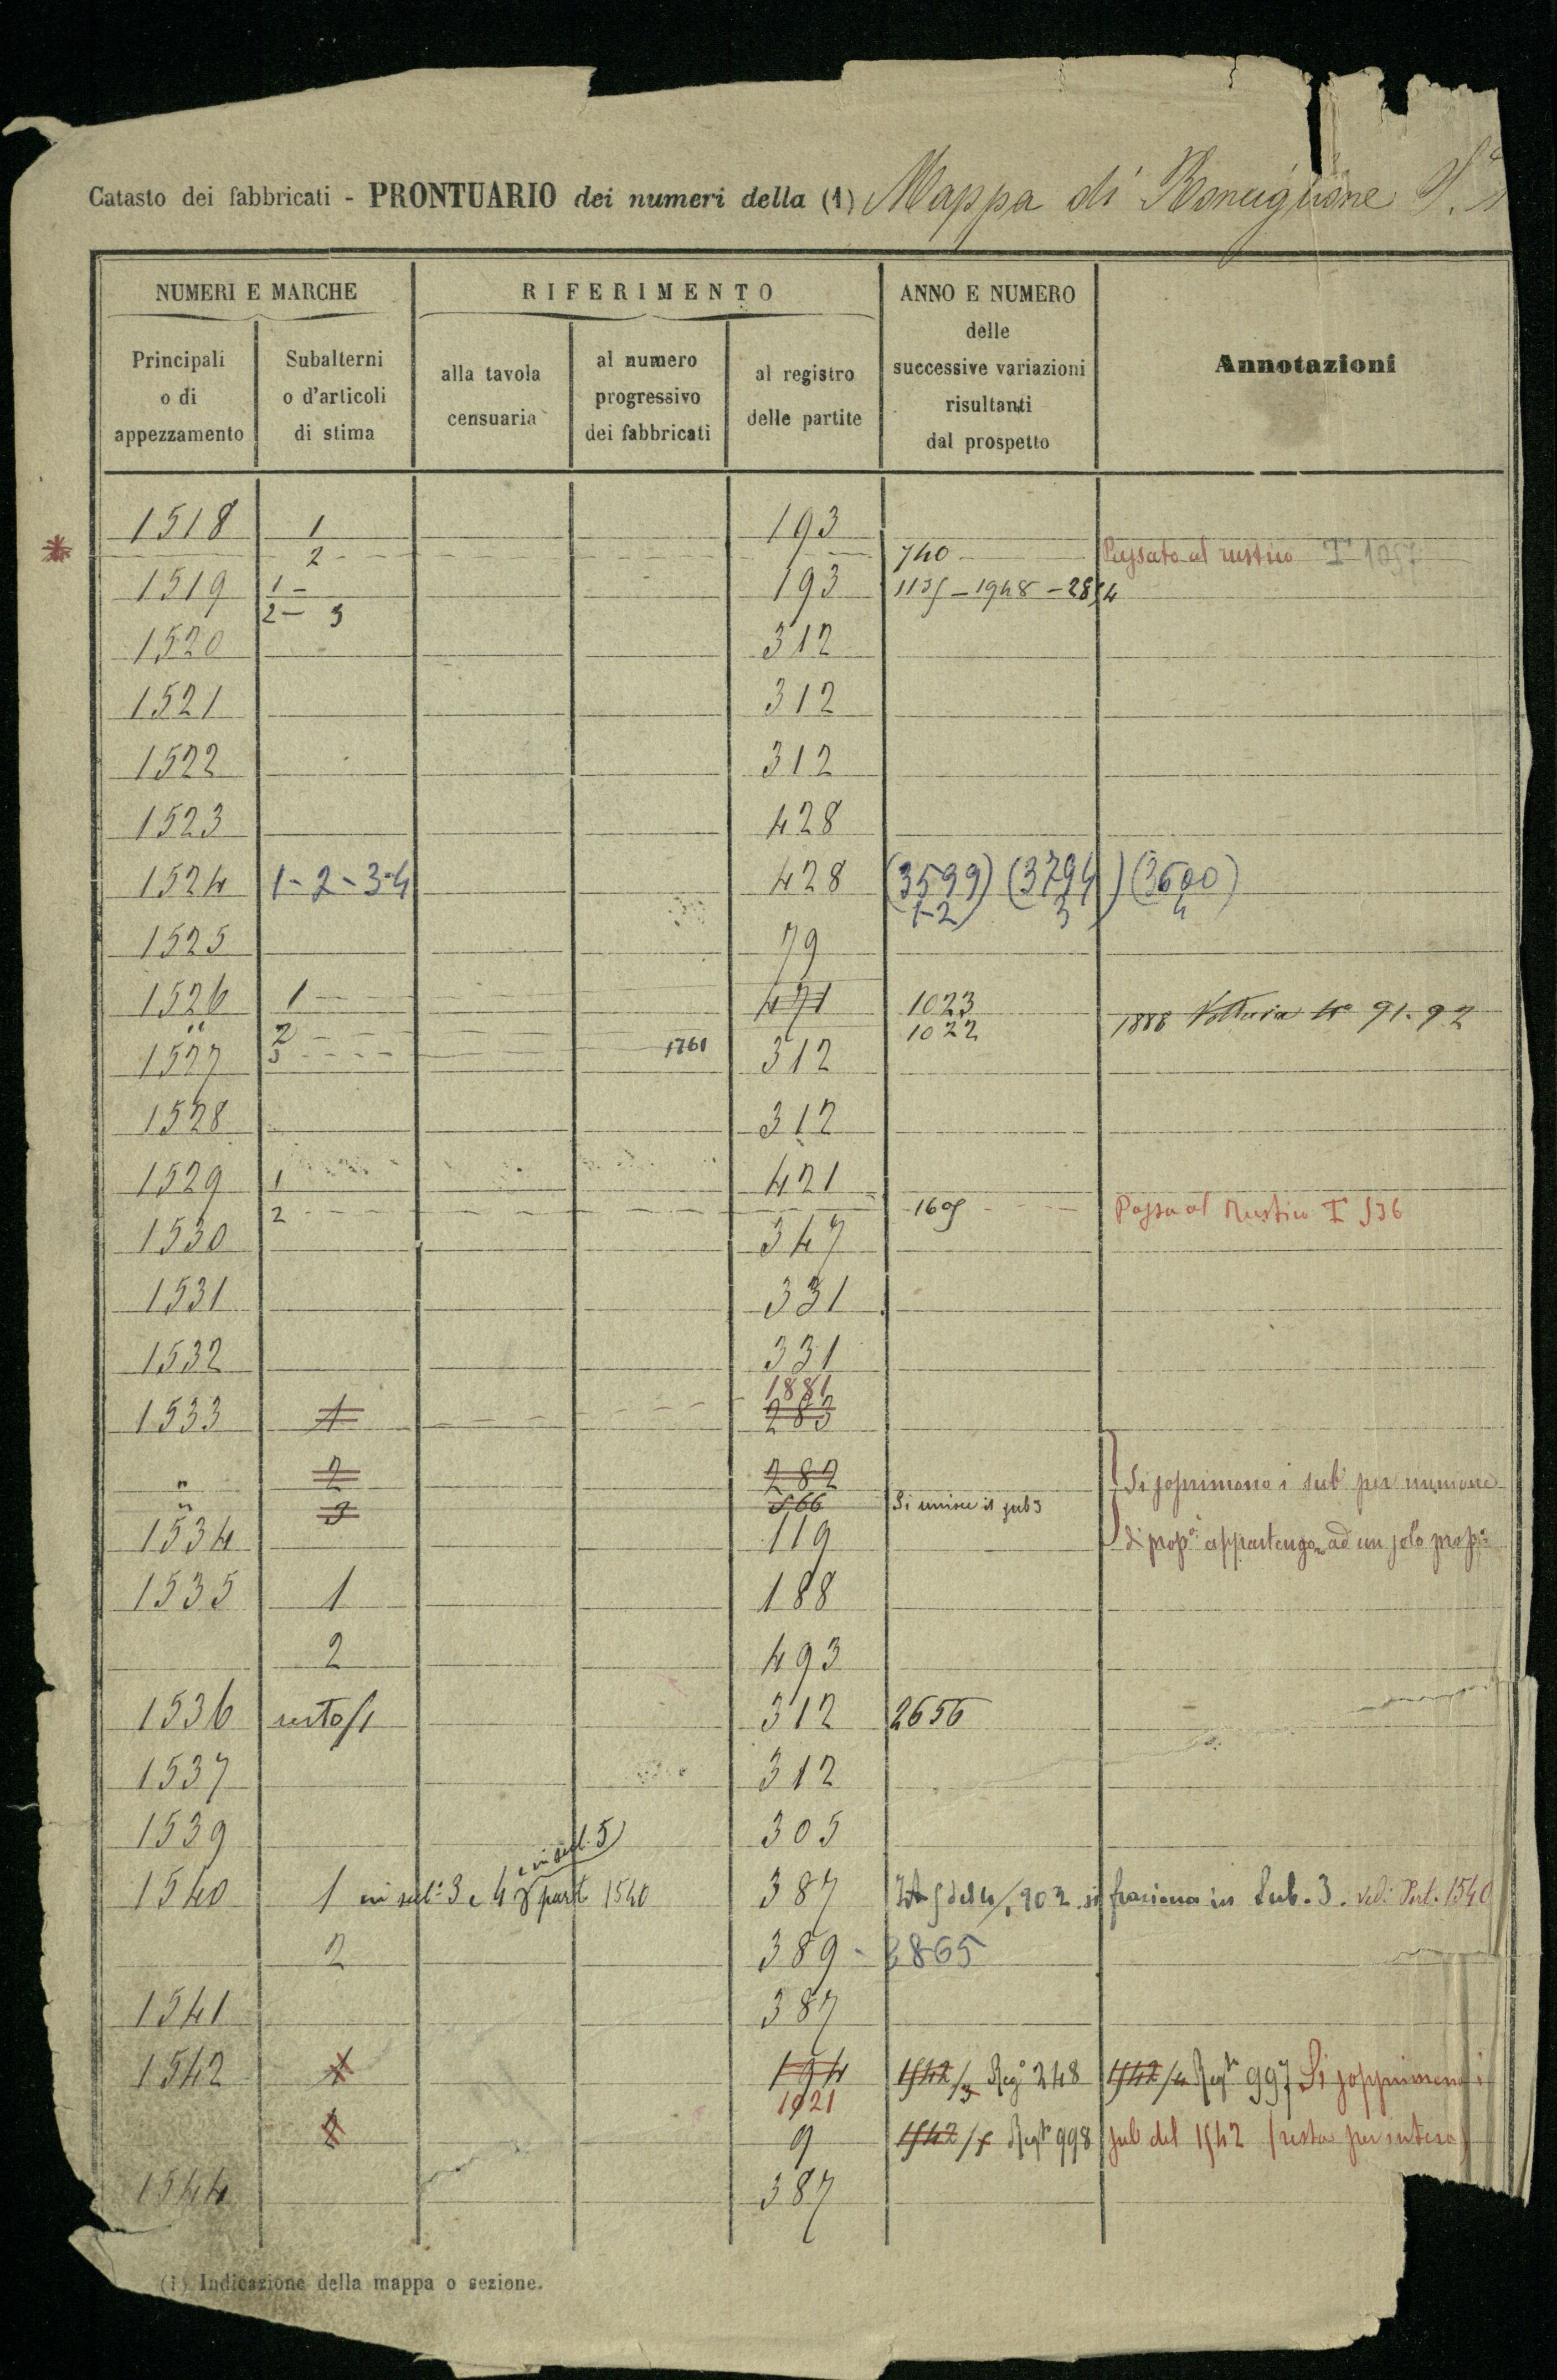 Catasto dei fabbricati - PRONTUARIO dei numeri della (1) Mappa di Ronciglione S.
NUMERI E MARCHE
RIFERIMENTO
ANNO E NUMERO
delle
successive variazioni
risultanti
dal prospetto
Annotazioni
Principali
o di
appezzamento
Subalterni
o d'articoli
di stima
alla tavola
censuaria
al numero
progressivo
dei fabbricati
al registro
delle partite
1518 1 193
2 740 Passato al rustico
1519 1 193 1135-1948-2854
2 - 3
1520 312
1521 312
1522 312
1523 428
1524 1-2-3-4 428 (3599) (3794) (3600)
1-2 3 4
1525 79
1526 1 471 1023
" 2 1022 1888 Voltura No 91-92
3 1761
1527 312
1528 312
1529 1 421
2 1605 Passa al Rustico 536
1530 347
1531 331
1532 331
1881
1533 1 283
" 2 282 Si sopprimono i sub per riunione
" 3 566 Si unisce il sub 3
1534 119 di propà appartengon ad un solo propo
1535 1 188
2 493
1536 resto/1 312 2656
1537 312
1539 305
e in sub. 5
1540 1 in sub. 3 e 4 part 1540 387 202 si fraziona in Sub. 3. vedi Part. 1540
2 389 - 2865
1541 387
1542 1 194 1542/3 Rego 248 1542/4 Regto 997 Si sopprimono i
1921
2 9 1542/5 Regto 998 sub del 1542 (resta per intero)
1544 387
(1) Indicazione della mappa o sezione.